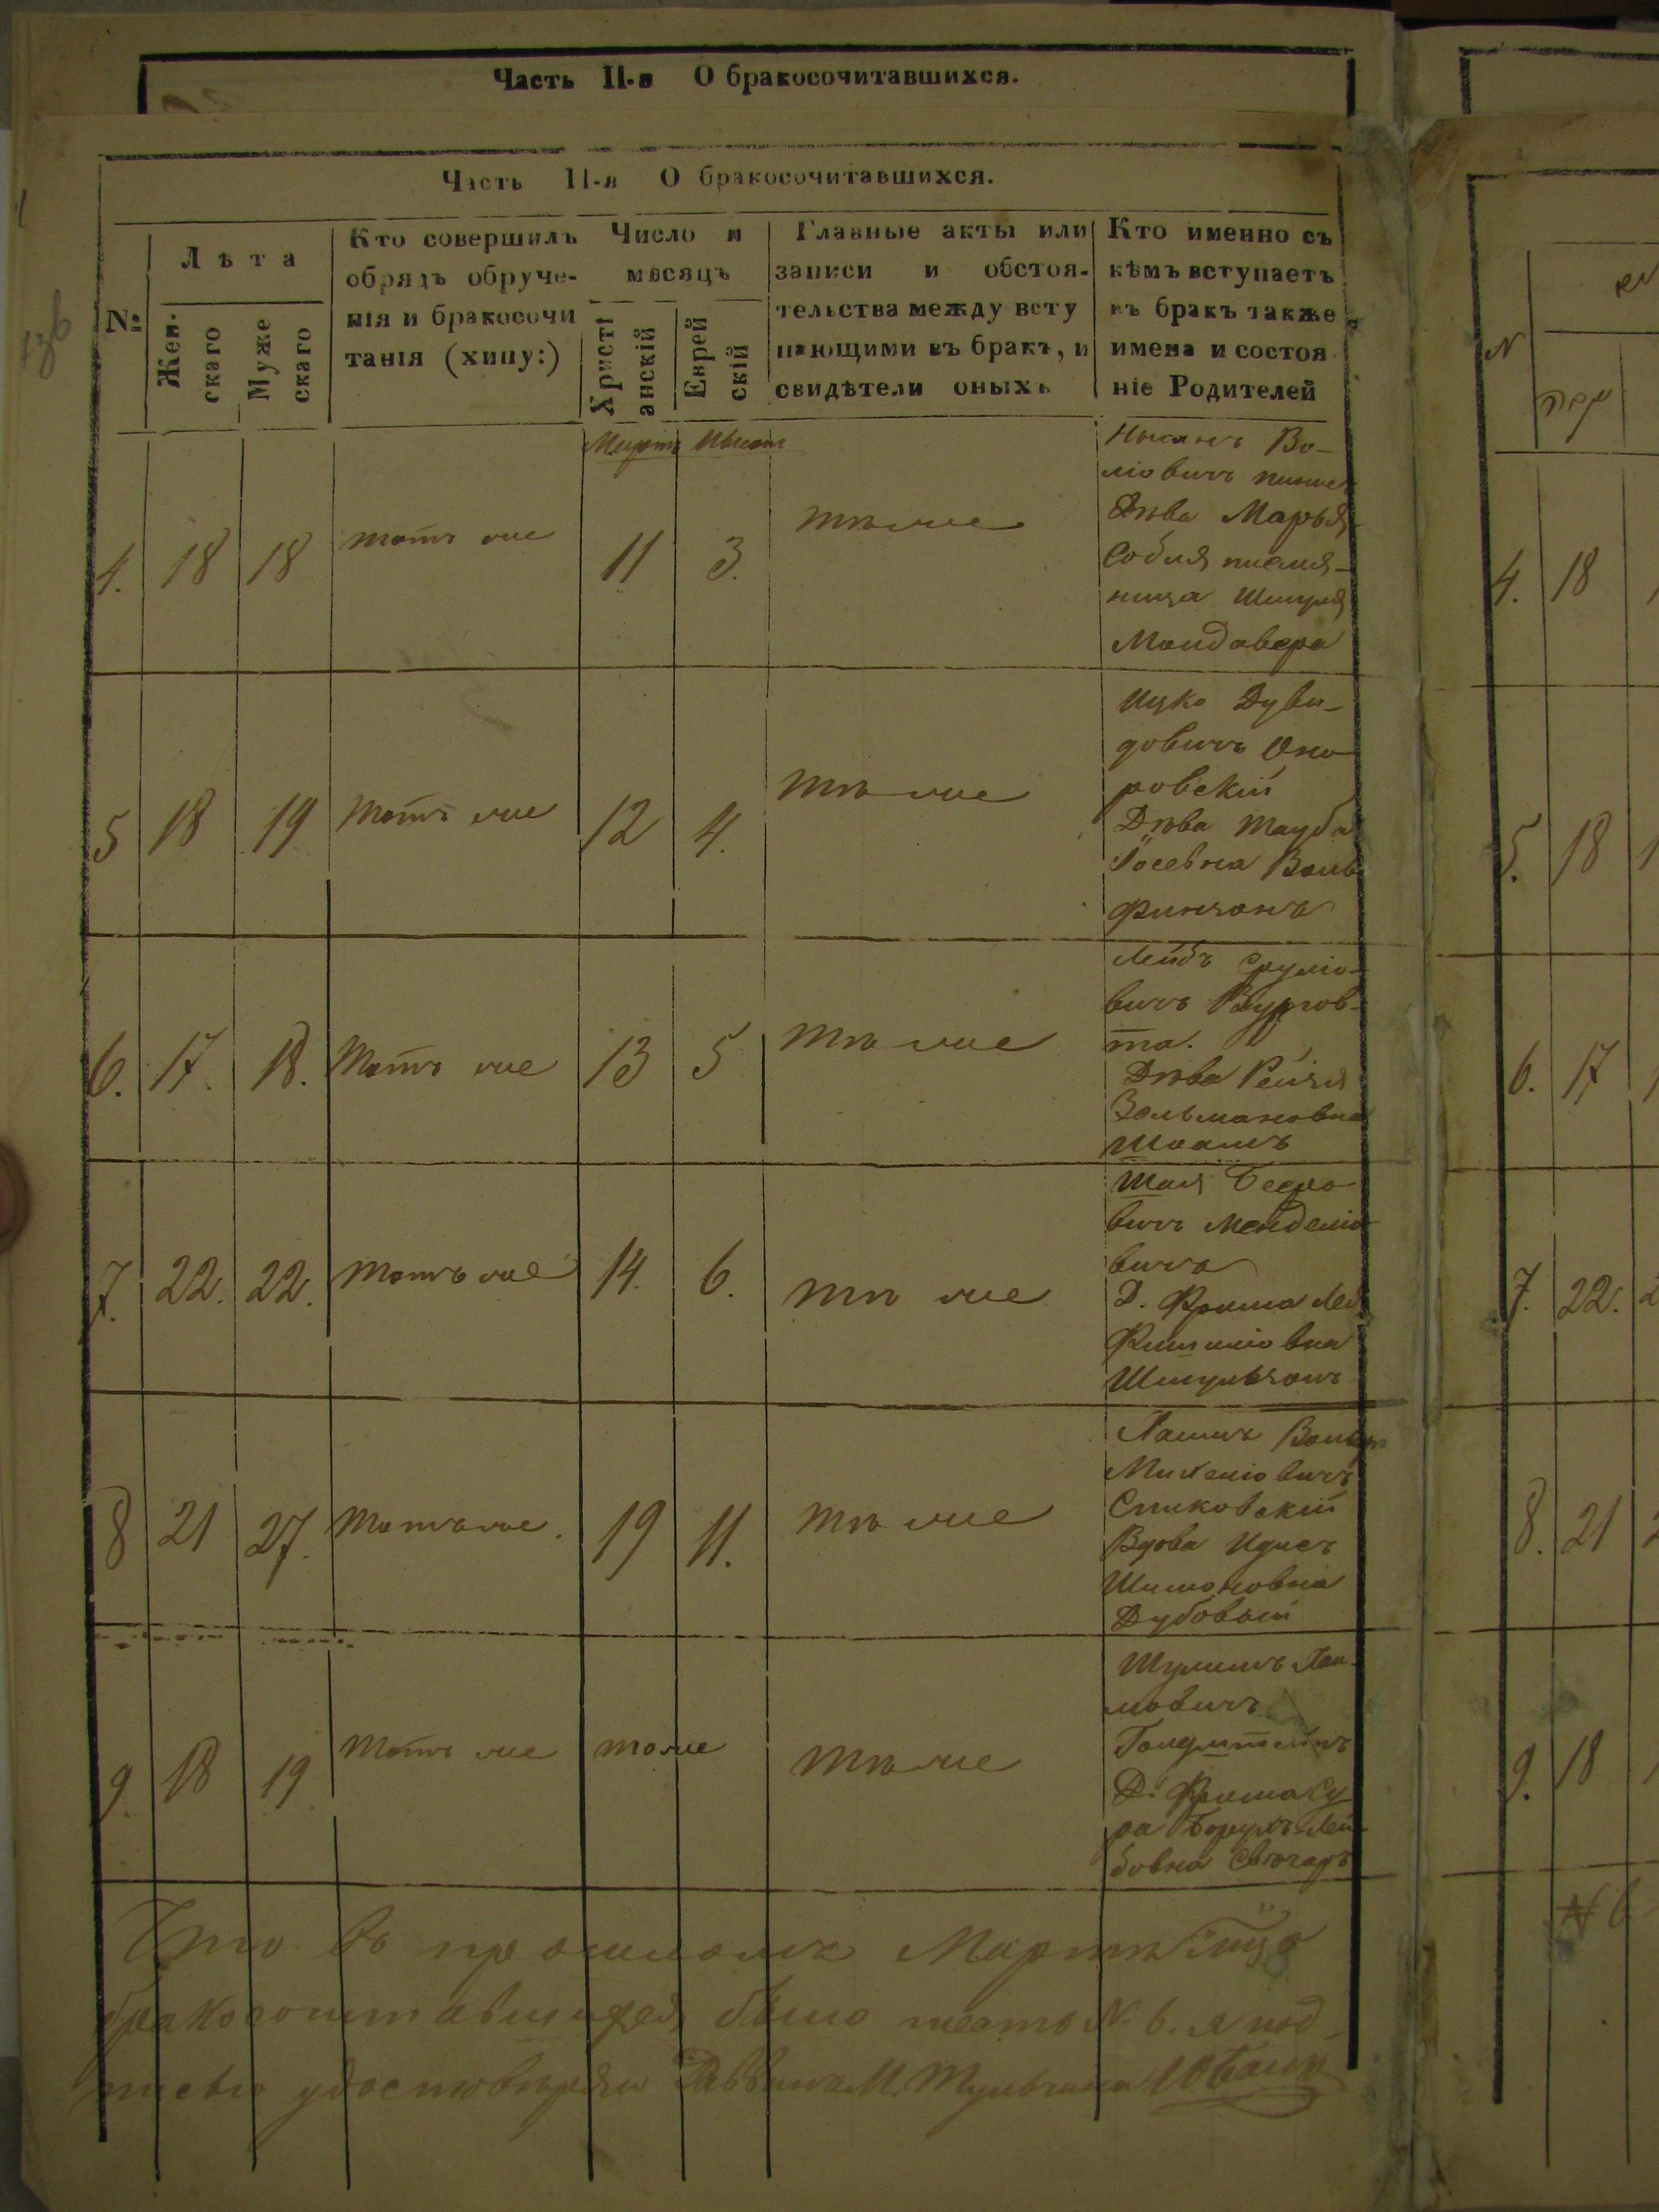 Часть II-я О бракосочитавшихся.
Часть II-я О бракосочитавшихся.
№
Лѣта
Женскаго
Мужескаго
Кто совершилъ
обрядъ обруче-
нія и бракосочи
танія (хипу:)
Число и
мѣсяцъ
Христіанскій
Еврейскій
Главные акты или
записи и обстоя-
тельства между всту
пающими въ бракъ, и
свидѣтели оныхъ
Кто именно съ
кѣмъ вступаетъ
въ бракъ также
имена и состоя
ніе Родителей
Мартъ
4. 18 18 тотъ же 11 3. тѣ же
Нысанъ Во-
ліовичъ
Дѣва Марья
Собля племя-
ница Шмуля
Молдавера
5 18 19 тотъ же 12 4. тѣ же
Ицко Дуви-
довичъ
ровскій
Дѣва Тауба
Іосевна Воль
6. 17. 18. Тотъ же 13 5 тѣ же
Лейбъ Сруліо-
вичъ
та.
Дѣва Рейзя
Зельмановна
7. 22. 22. тотъ же 14. 6. тѣ же
Шая Беро
вичъ Менделіо
вичъ
Д. Фрима Лея
Фишиліовна
Шмульзонъ
8 21 27. тотъ же. 19 11. тѣ же
Михеліовичъ
Спиковскій
Вдова Идисъ
Шимоновна
Дубовый
9. 18 19. Тотъ же тоже тѣ же
Шулимъ Хаи
мовичъ
Голдштейнъ
Д. Фрима Су
ра Борухъ-Лей
бовна Свѣчаръ
Что въ прошломъ Мартѣ м-цѣ
бракосочитавшихся было шесть N. 6. я под-
писью удостовѣряю Раввинъ М. Тульчина
4. 18
5. 18
6. 17
7. 22.
8. 21
9. 18
N 6